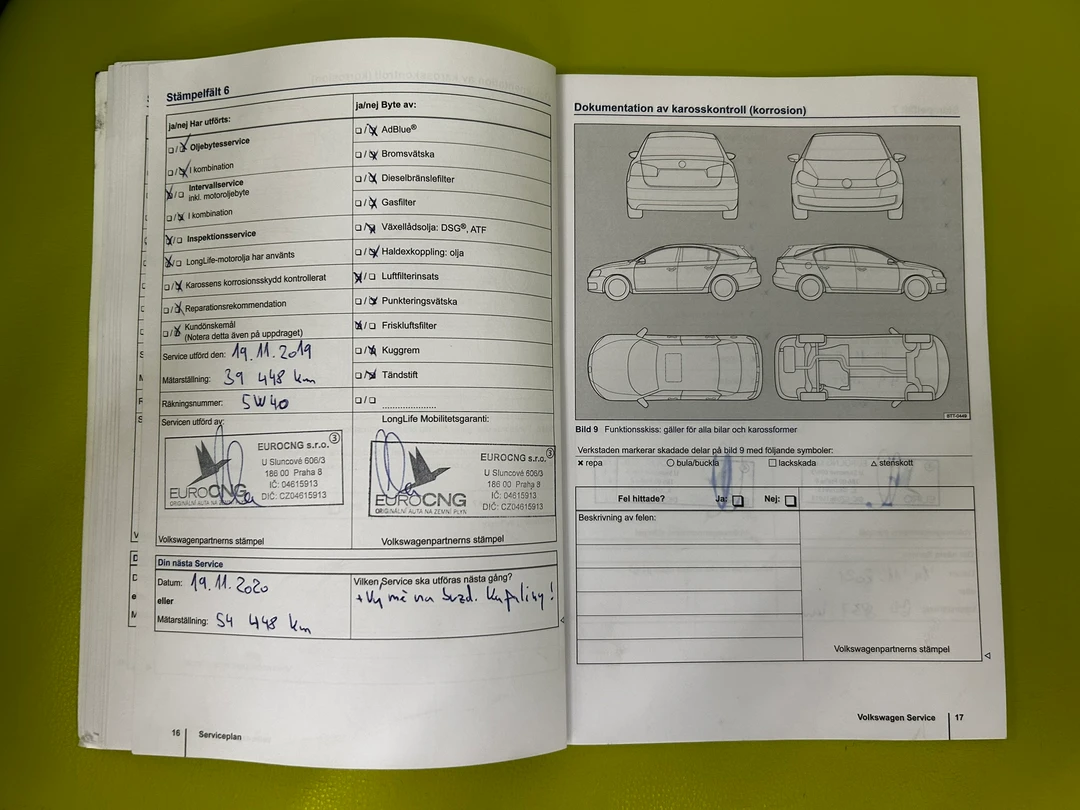 Stämpelfält 6
ja/nej Har utförts:
Oljebytesservice
I kombination
Intervallservice
inkl. motoroljebyte
I kombination
Inspektionsservice
LongLife-motorolja har använts
Karossens korrosionsskydd kontrollerat
Reparationsrekommendation
Kundönskemål
(Notera detta även på uppdraget)
Service utförd den: 19.11.2019
Mätarställning: 39 448 km
Räkningsnummer: 5W40
Servicen utförd av:
EUROCNG s.r.o. 3
U Sluncové 606/3
186 00 Praha 8
IČ: 04615913
DIČ: CZ04615913
EUROCNG
ORIGINÁLNÍ AUTA NA ZEMNÍ PLYN
Volkswagenpartnerns stämpel
ja/nej Byte av:
AdBlue®
Bromsvätska
Dieselbränslefilter
Gasfilter
Växellådsolja: DSG®, ATF
Haldexkoppling: olja
Luftfilterinsats
Punkteringsvätska
Friskluftsfilter
Kuggrem
Tändstift
LongLife Mobilitetsgaranti:
EUROCNG s.r.o. 3
U Sluncové 606/3
186 00 Praha 8
IČ: 04615913
DIČ: CZ04615913
EUROCNG
ORIGINÁLNÍ AUTA NA ZEMNÍ PLYN
Volkswagenpartnerns stämpel
Din nästa Service
Datum: 19.11.2020
eller
Mätarställning: 54 448 km
Vilken Service ska utföras nästa gång?
16 Serviceplan
Dokumentation av karosskontroll (korrosion)
BTT-0448
Bild 9 Funktionsskiss: gäller för alla bilar och karossformer
Verkstaden markerar skadade delar på bild 9 med följande symboler:
× repa ○ bula/buckla □ lackskada △ stenskott
Fel hittade? Ja: Nej:
Beskrivning av felen:
Volkswagenpartnerns stämpel
Volkswagen Service 17